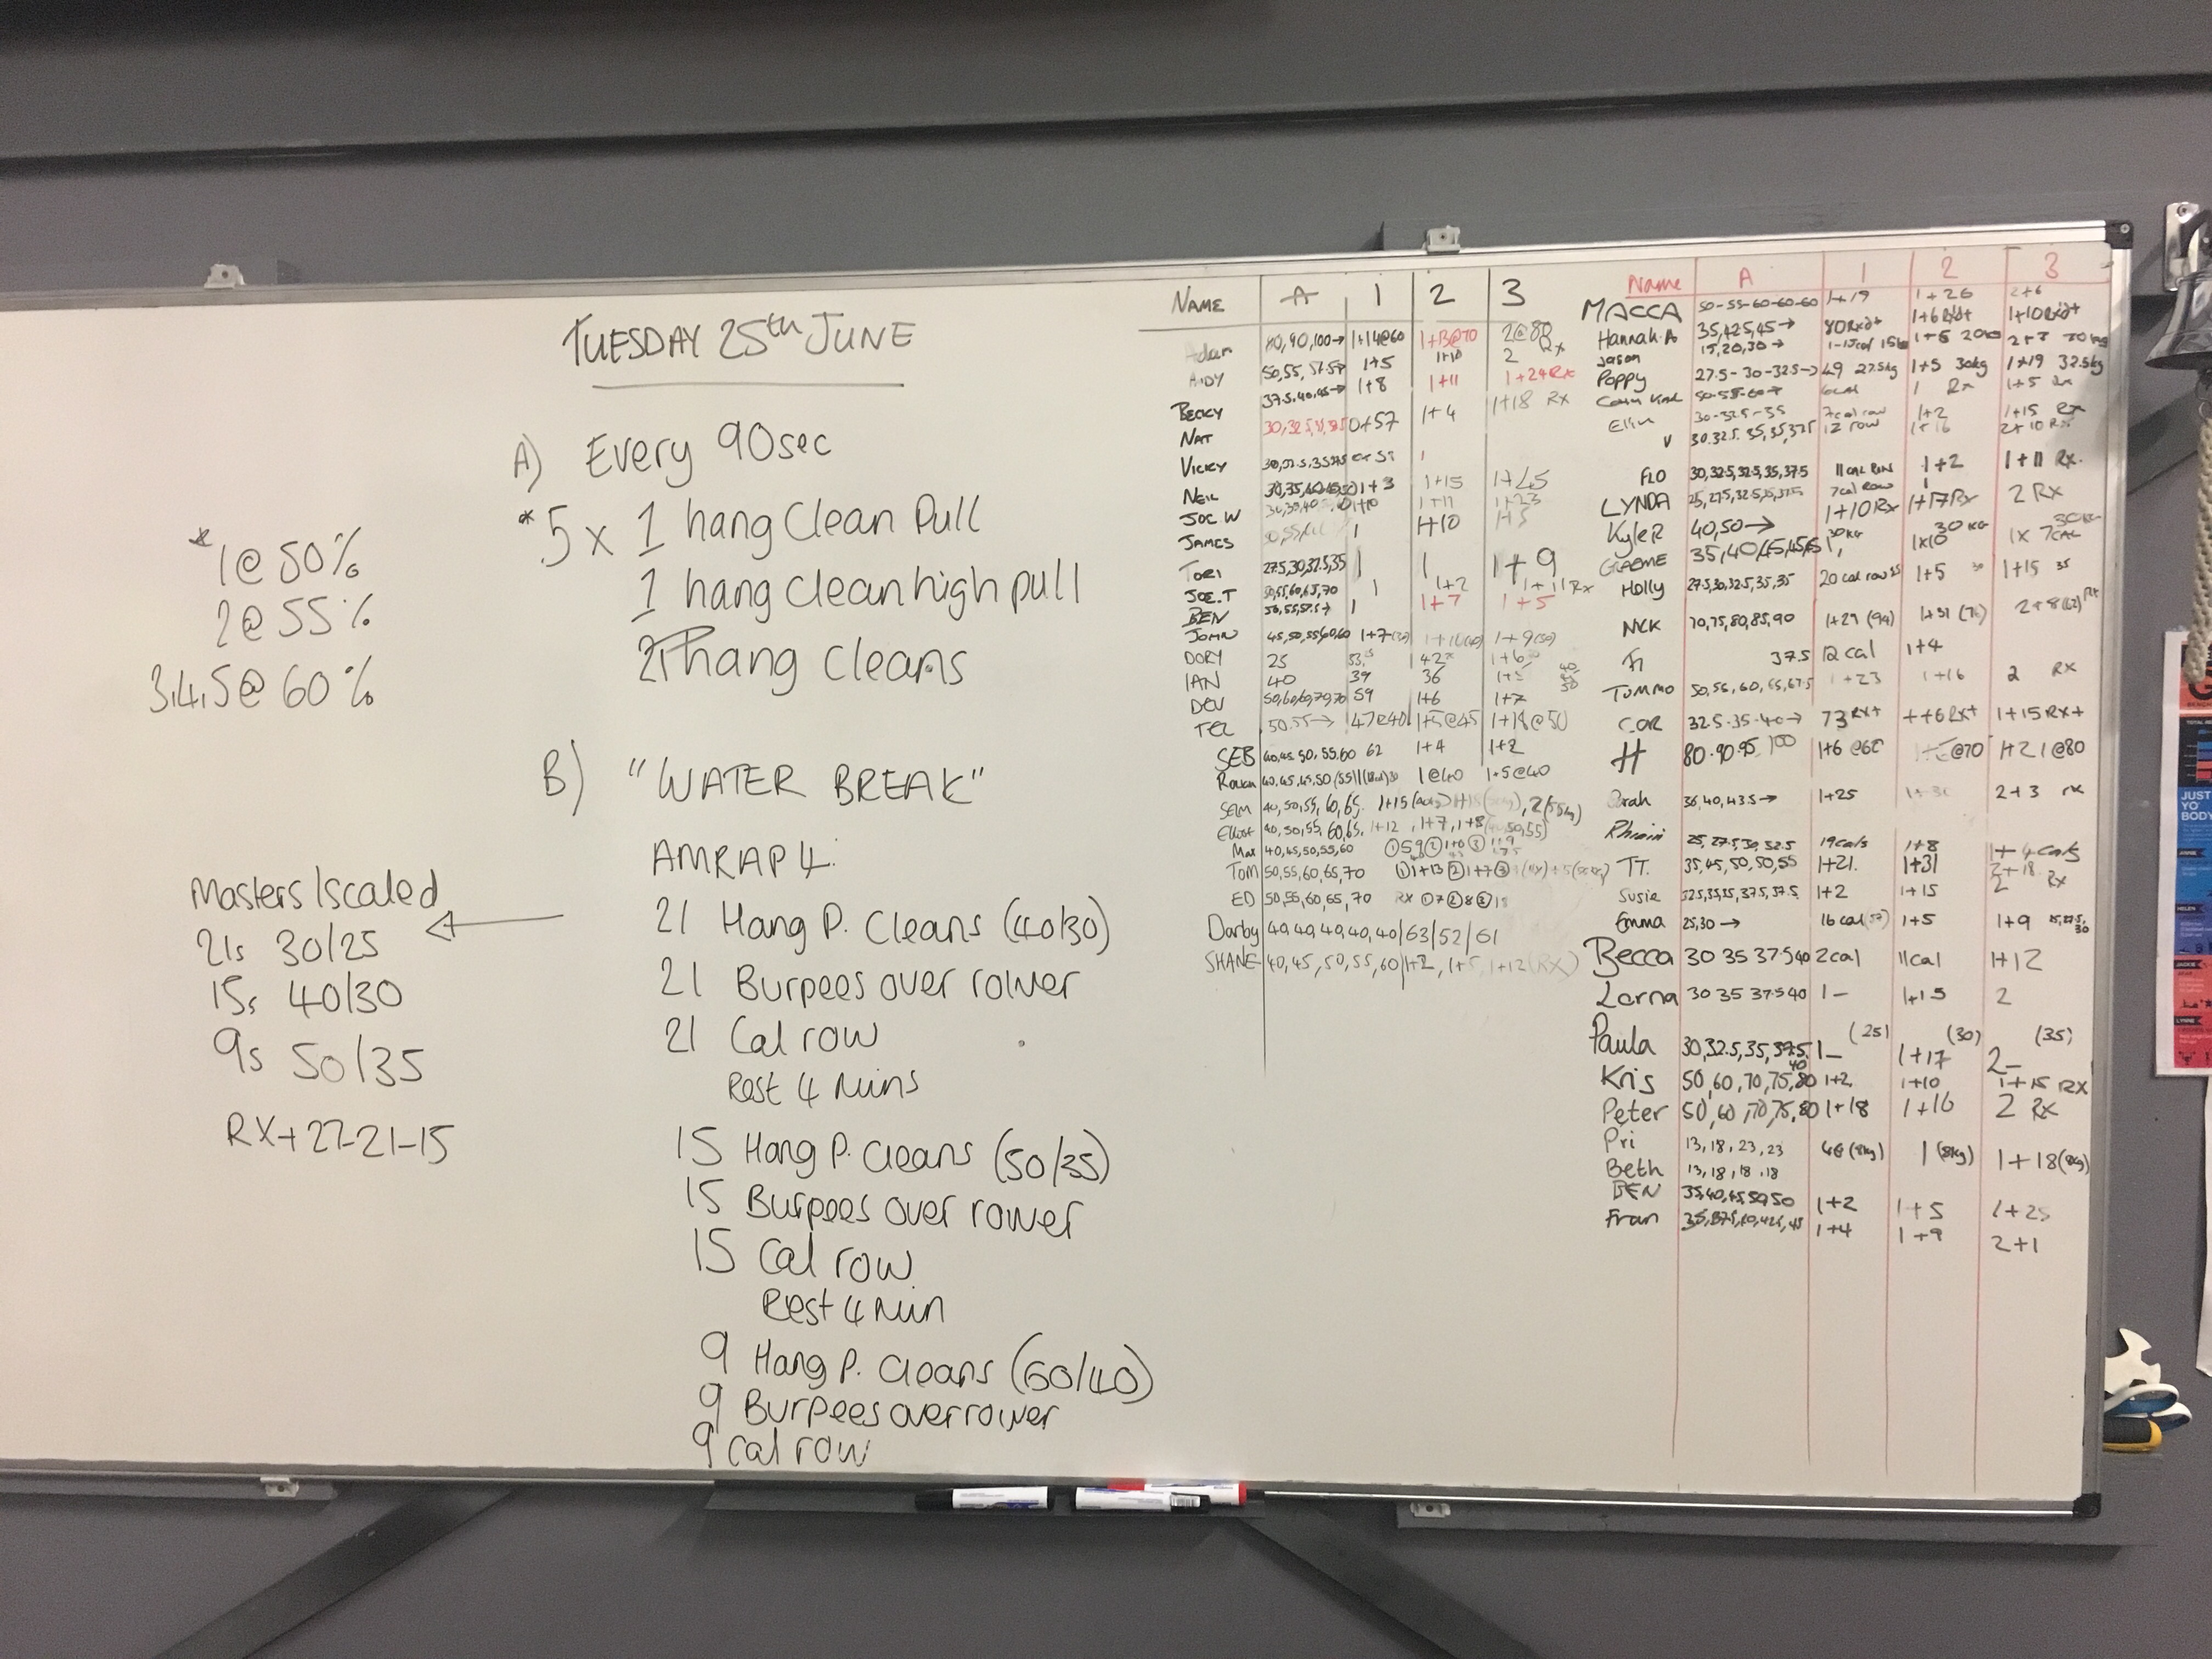 TUESDAY 25th JUNE
A) Every 90sec
*5 x 1 hang Clean Pull
1 hang clean high pull
2 hang cleans
*1@ 50%
2@ 55%
3,4,5@ 60%
B) "WATER BREAK"
AMRAP 4
21 Hang P. Cleans (40/30)
21 Burpees over rower
21 Cal row
Rest 4 mins
15 Hang P. Cleans (50/35)
15 Burpees over rower
15 Cal row
Rest 4 Min
9 Hang P. Cleans (60/40)
9 Burpees over rower
9 Cal row
Masters/scaled
21s 30/25
15s 40/30
9s 50/35
RX+ 27-21-15
NAME A 1 2 3
Adam 1+14@60 1+13@70 2@80 Rx
ANDY 1+5 1+10 2
BECKY 1+8 1+11 1+24 Rx
NAT 0+57 1+4 1+18 Rx
VICKY
NEIL 1+3 1+15 1+25
JOE.W 1+10 1+11 1+23
JAMES 1 1+10 1+5
TORI 27.5,30,32.5,35 1 1 1+9
JOE.T 50,55,60,65,70 1 1+2 1+11 Rx
BEN 1 1+7 1+5
JOHN 45,50,55,60,60 1+7 1+9(50)
DORY 25 42 1+6
IAN 40 39 36
DEV 59 1+6 1+7
TEL 50.55→ 47@40 1+5@45 1+18@50
SEB 40,45,50,55,60 62 1+4 1+2
Rowan 40,45,45,50 1@40 1+5@40
SAM 40,50,55,60,65 1+15
Elliot 40,50,55,60,65 1+12, 1+7, 1+8
Max 40,45,50,55,60
TOM 50,55,60,65,70 ①1+13 ②1+7
ED 50,55,60,65,70 RX
Darby 40,40,40,40,40 63/52/61
SHANE 40,45,50,55,60 1+2, 1+5, 1+12 (RX)
Name A 1 2 3
MACCA 50-55-60-60-60 1+19 1+26 2+6
Hannah.A 35,42.5,45→ 80Rx+ 1+6 Rx+ 1+10Rx+
Jason 15,20,30→
Poppy 27.5-30-32.5→ 49 27.5kg 1+5 30kg 1+19 32.5kg
1 Rx 1+5 Rx
30-32.5-35 7cal row 1+2 1+15 Rx
V 30.32.5.35,35,37.5 12 row 1+16 2+10 Rx
FLO 30,32.5,32.5,35,37.5 11 CAL RIN 1+2 1+11 Rx.
LYNDA 7cal row 1 2 Rx
Kyler 40,50→ 1+10Rx 1+17Rx
GRAEME 35,40,45,45,45
Holly 27.5,30,32.5,35,35 20 cal row 1+5 1+15 35
NICK 70,75,80,85,90 1+29 (94) 1+31 (76) 2+8
37.5 12 cal 1+4
TOMMO 50,55,60,65,67.5 1+23 1+16 2 RX
COR 32.5-35-40→ 73 RX+ ++6 RX+ 1+15 RX+
H 80.90.95.100 1+6 @60 @70 1+21@80
Sarah 36,40,43.5→ 1+25 2+3 rx
25, 27.5, 30, 32.5 19cals 1+8 1+4 cals
TT. 35,45,50,50,55 1+21. 1+31 2+18
Susie 1+2 1+15 2 RX
Emma 25,30→ 16 cal 1+5 1+9
Becca 30 35 37.5 40 2cal 11cal 1+12
Lorna 30 35 37.5 40 1- 1+15 2
(25) (30) (35)
Paula 30,32.5,35,37.5, 40 1- 1+17 2-
Kris 50,60,70,75,80 1+2 1+10 1+15 RX
Peter 50,60,70,75,80 1+18 1+16 2 Rx
Pri 13,18,23,23 46(8kg) 1 (8kg) 1+18(8kg)
Beth 13,18,18,18
BEN 35,40,45,50,50 1+2 1+5 1+25
Fran 35,37.5,40,42.5,45 1+4 1+9 2+1
JUST
YO
BODY